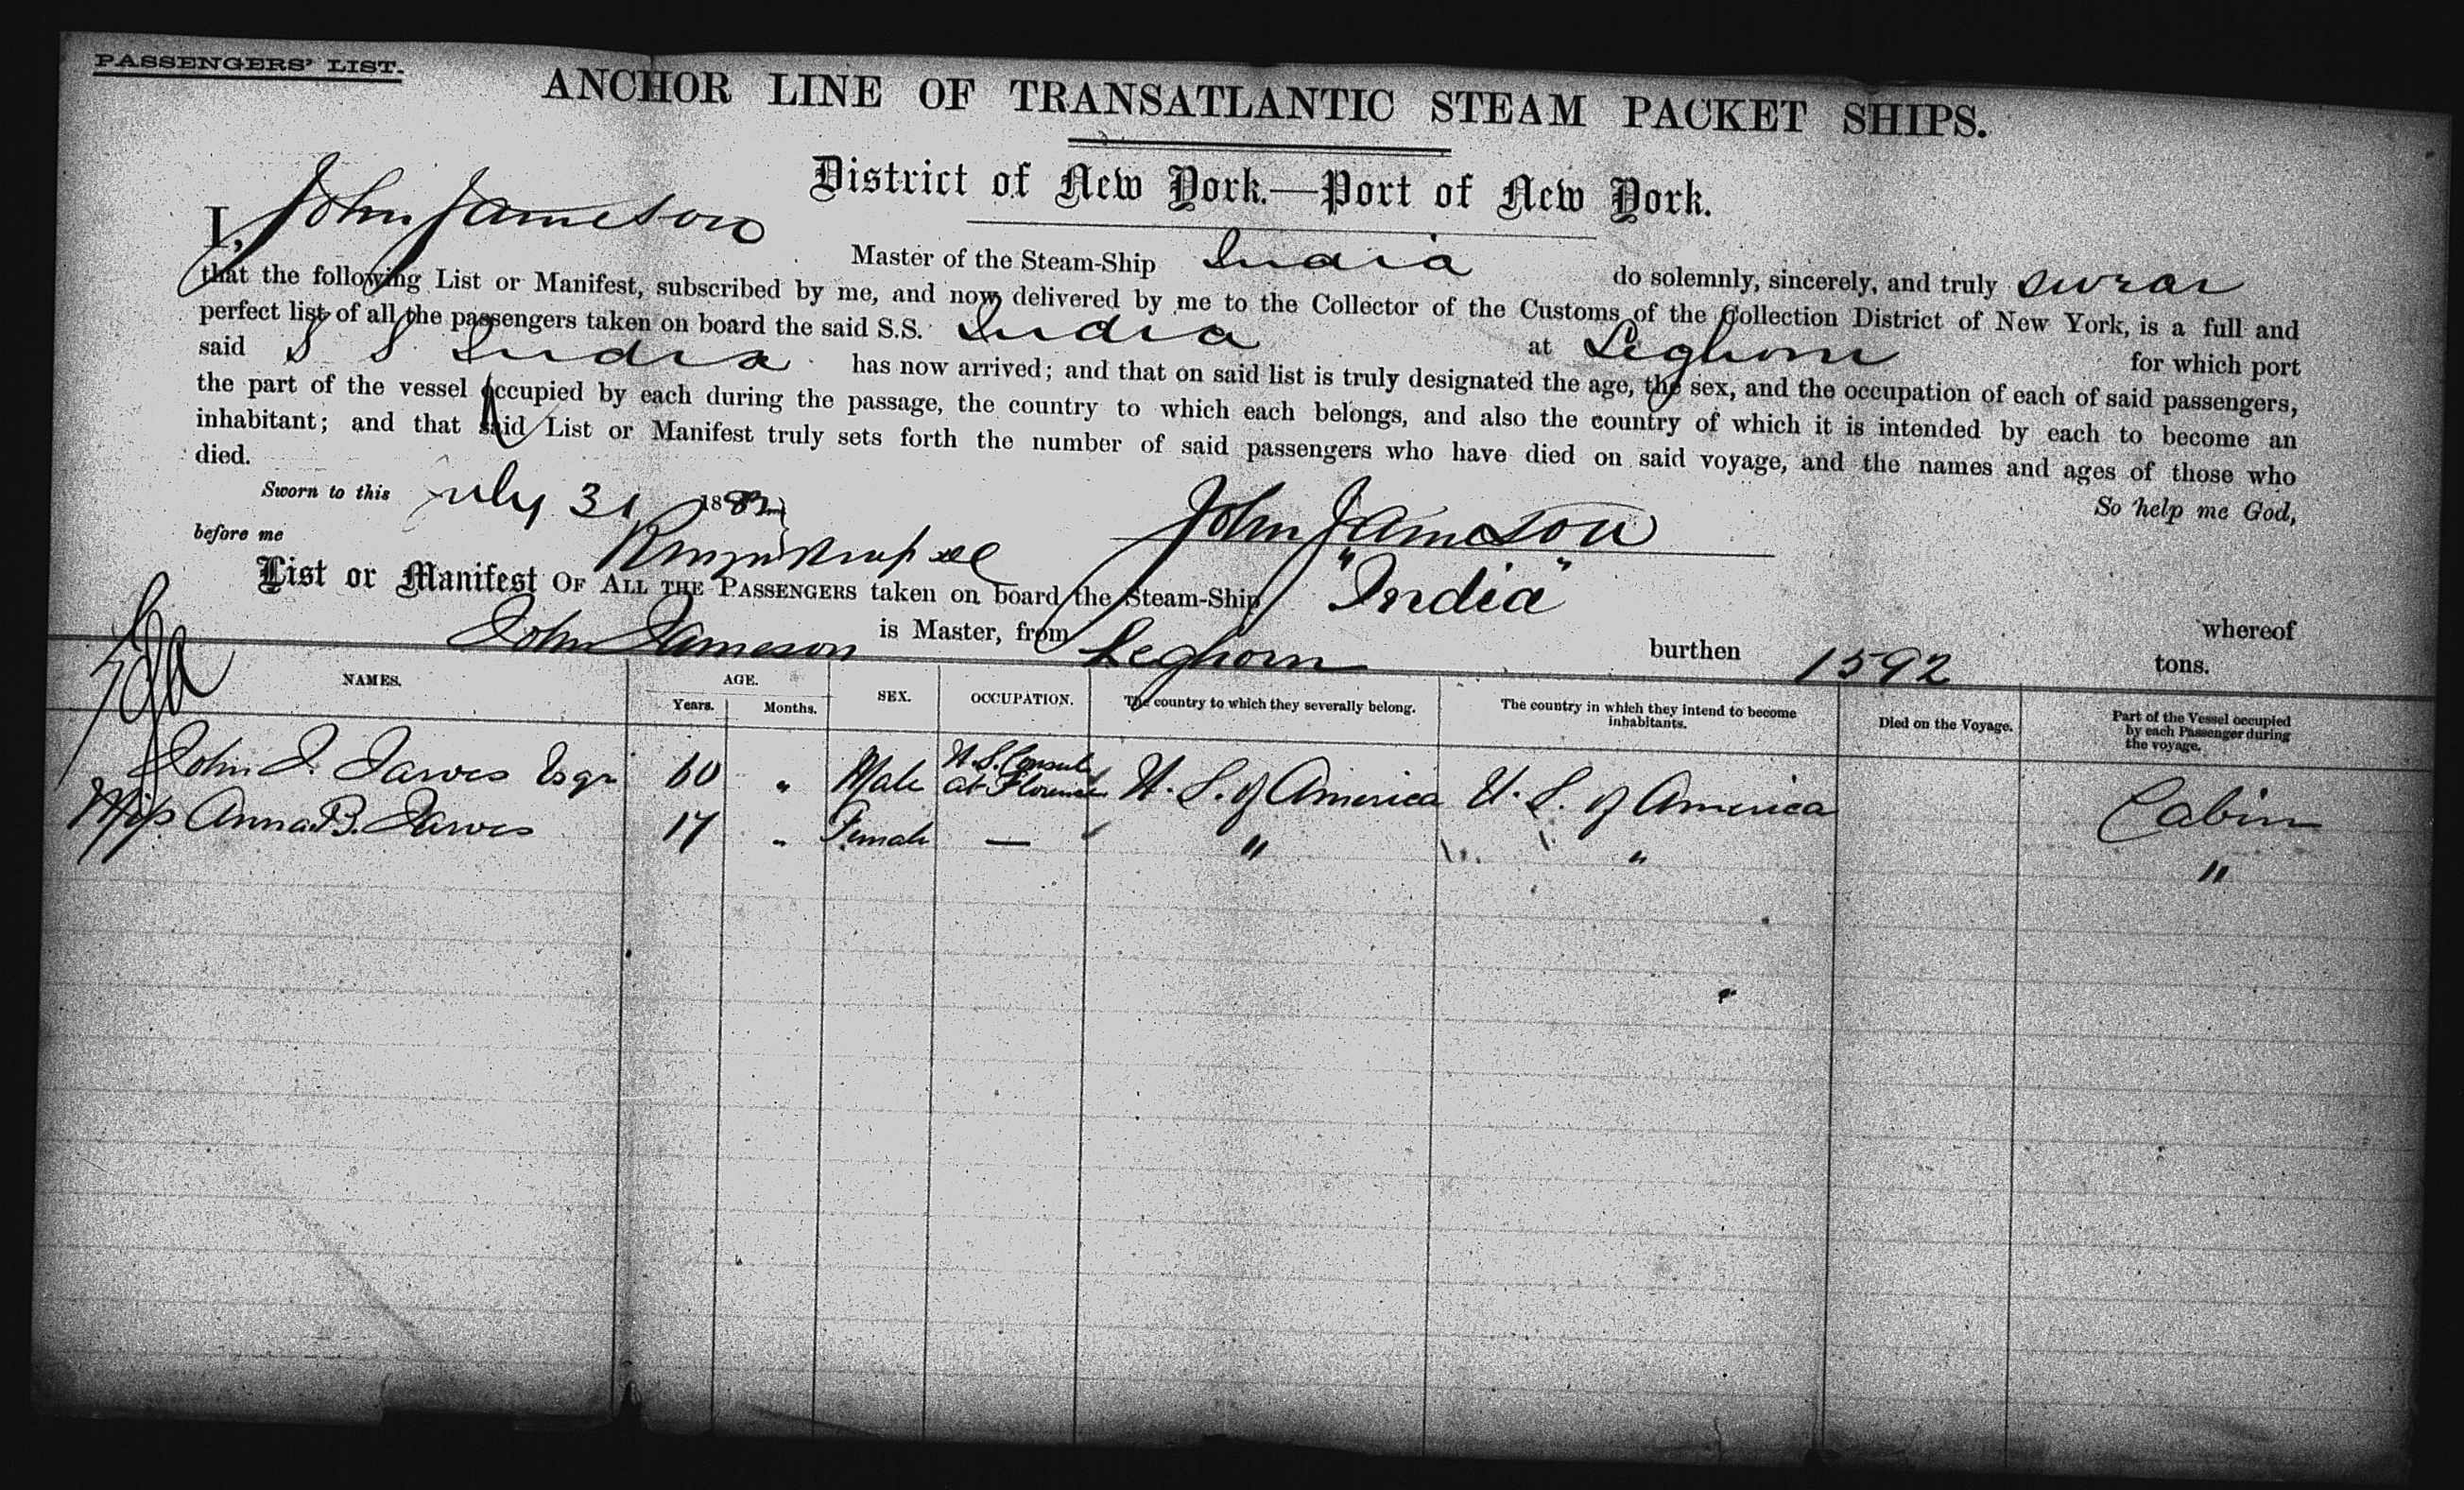 PASSENGERS' LIST.
ANCHOR LINE OF TRANSATLANTIC STEAM PACKET SHIPS.
District of New York.—Port of New York.
I, John Jameson Master of the Steam-Ship India do solemnly, sincerely, and truly swear
that the following List or Manifest, subscribed by me, and now delivered by me to the Collector of the Customs of the Collection District of New York, is a full and
perfect list of all the passengers taken on board the said S.S. India at Leghorn for which port
said S S India has now arrived; and that on said list is truly designated the age, the sex, and the occupation of each of said passengers,
the part of the vessel occupied by each during the passage, the country to which each belongs, and also the country of which it is intended by each to become an
inhabitant; and that said List or Manifest truly sets forth the number of said passengers who have died on said voyage, and the names and ages of those who
died.
So help me God,
Sworn to this July 31 188
before me
John Jameson
List or Manifest OF ALL THE PASSENGERS taken on board the Steam-Ship "India" whereof
John Jameson is Master, from Leghorn burthen 1592 tons.
NAMES. AGE. Years. Months. SEX. OCCUPATION. The country to which they severally belong. The country in which they intend to become inhabitants. Died on the Voyage. Part of the Vessel occupied by each Passenger during the voyage.
John J. Jarves Esqr 60 " Male U.S. Consul at Florence U. S. of America U. S. of America Cabin
Miss Anna B. Jarves 17 " Female — " " "